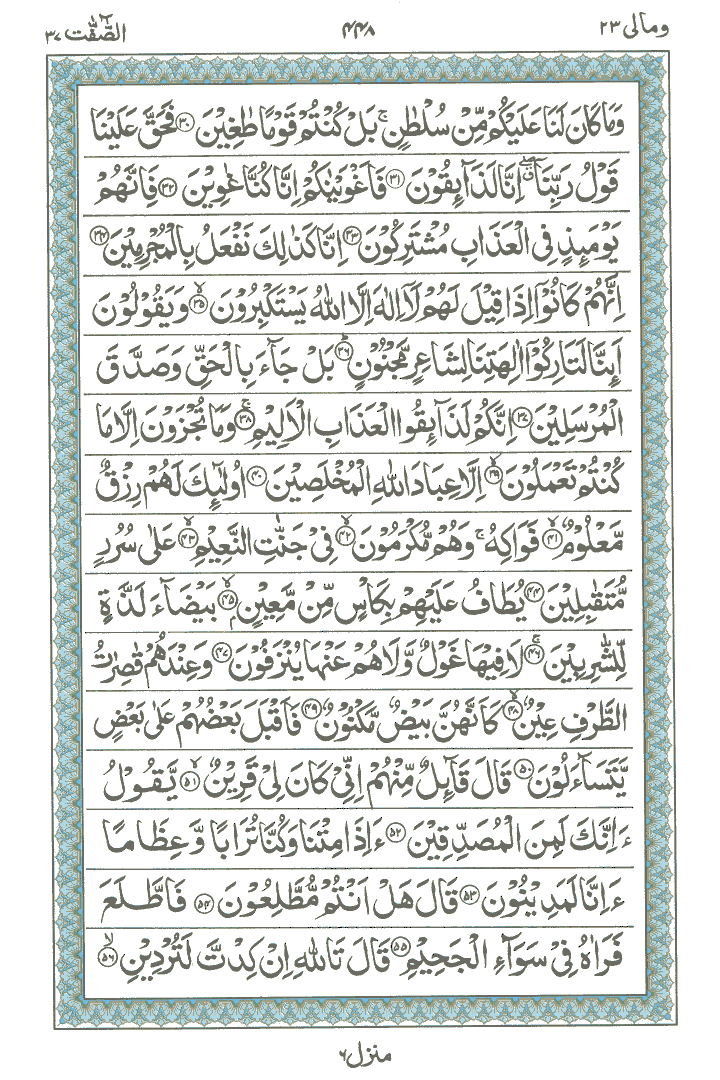 ومالی ٢٣ ٤٤٨ الصّٰٓفّٰت ٣٧
وَمَا كَانَ لَنَا عَلَيْكُمْ مِّنْ سُلْطٰنٍ ۚ بَلْ كُنْتُمْ قَوْمًا طٰغِيْنَ ﴿٣٠﴾ فَحَقَّ عَلَيْنَا
قَوْلُ رَبِّنَآ ۖ اِنَّا لَذَآئِقُوْنَ ﴿٣١﴾ فَاَغْوَيْنٰكُمْ اِنَّا كُنَّا غٰوِيْنَ ﴿٣٢﴾ فَاِنَّهُمْ
يَوْمَئِذٍ فِى الْعَذَابِ مُشْتَرِكُوْنَ ﴿٣٣﴾ اِنَّا كَذٰلِكَ نَفْعَلُ بِالْمُجْرِمِيْنَ ﴿٣٤﴾
اِنَّهُمْ كَانُوْٓا اِذَا قِيْلَ لَهُمْ لَآ اِلٰهَ اِلَّا اللّٰهُ يَسْتَكْبِرُوْنَ ۙ﴿٣٥﴾ وَيَقُوْلُوْنَ
اَئِنَّا لَتَارِكُوْٓا اٰلِهَتِنَا لِشَاعِرٍ مَّجْنُوْنٍ ؕ﴿٣٦﴾ بَلْ جَآءَ بِالْحَقِّ وَصَدَّقَ
الْمُرْسَلِيْنَ ﴿٣٧﴾ اِنَّكُمْ لَذَآئِقُوا الْعَذَابِ الْاَلِيْمِ ۚ﴿٣٨﴾ وَمَا تُجْزَوْنَ اِلَّا مَا
كُنْتُمْ تَعْمَلُوْنَ ۙ﴿٣٩﴾ اِلَّا عِبَادَ اللّٰهِ الْمُخْلَصِيْنَ ﴿٤٠﴾ اُولٰٓئِكَ لَهُمْ رِزْقٌ
مَّعْلُوْمٌ ۙ﴿٤١﴾ فَوَاكِهُ ۚ وَهُمْ مُّكْرَمُوْنَ ۙ﴿٤٢﴾ فِىْ جَنّٰتِ النَّعِيْمِ ۙ﴿٤٣﴾ عَلٰى سُرُرٍ
مُّتَقٰبِلِيْنَ ﴿٤٤﴾ يُطَافُ عَلَيْهِمْ بِكَاْسٍ مِّنْ مَّعِيْنٍۢ ۙ﴿٤٥﴾ بَيْضَآءَ لَذَّةٍ
لِّلشّٰرِبِيْنَ ۚ﴿٤٦﴾ لَا فِيْهَا غَوْلٌ وَّلَا هُمْ عَنْهَا يُنْزَفُوْنَ ﴿٤٧﴾ وَعِنْدَهُمْ قٰصِرٰتُ
الطَّرْفِ عِيْنٌ ۙ﴿٤٨﴾ كَاَنَّهُنَّ بَيْضٌ مَّكْنُوْنٌ ﴿٤٩﴾ فَاَقْبَلَ بَعْضُهُمْ عَلٰى بَعْضٍ
يَّتَسَآءَلُوْنَ ﴿٥٠﴾ قَالَ قَآئِلٌ مِّنْهُمْ اِنِّىْ كَانَ لِىْ قَرِيْنٌ ۙ﴿٥١﴾ يَّقُوْلُ
ءَاِنَّكَ لَمِنَ الْمُصَدِّقِيْنَ ﴿٥٢﴾ ءَاِذَا مِتْنَا وَكُنَّا تُرَابًا وَّعِظَامًا
ءَاِنَّا لَمَدِيْنُوْنَ ﴿٥٣﴾ قَالَ هَلْ اَنْتُمْ مُّطَّلِعُوْنَ ﴿٥٤﴾ فَاطَّلَعَ
فَرَاٰهُ فِىْ سَوَآءِ الْجَحِيْمِ ﴿٥٥﴾ قَالَ تَاللّٰهِ اِنْ كِدْتَّ لَتُرْدِيْنِ ۙ﴿٥٦﴾
منزل ٦